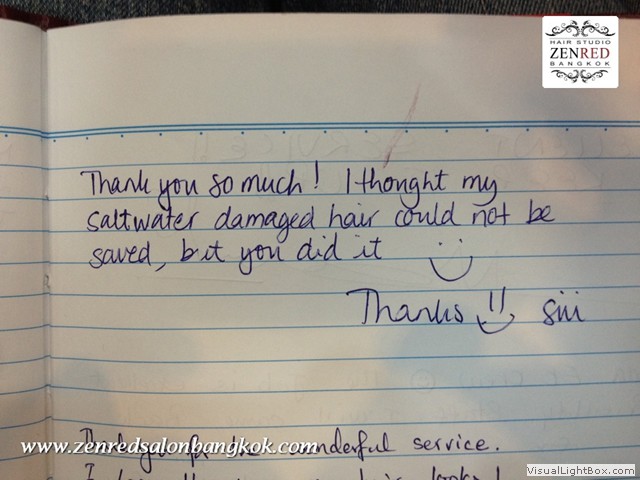 HAIR STUDIO
ZENRED
BANGKOK
Thank you so much! I thought my
saltwater damaged hair could not be
saved, but you did it
Thanks !! siii
Thank you for the wonderful service.
www.zenredsalonbangkok.com
VisualLightBox.com